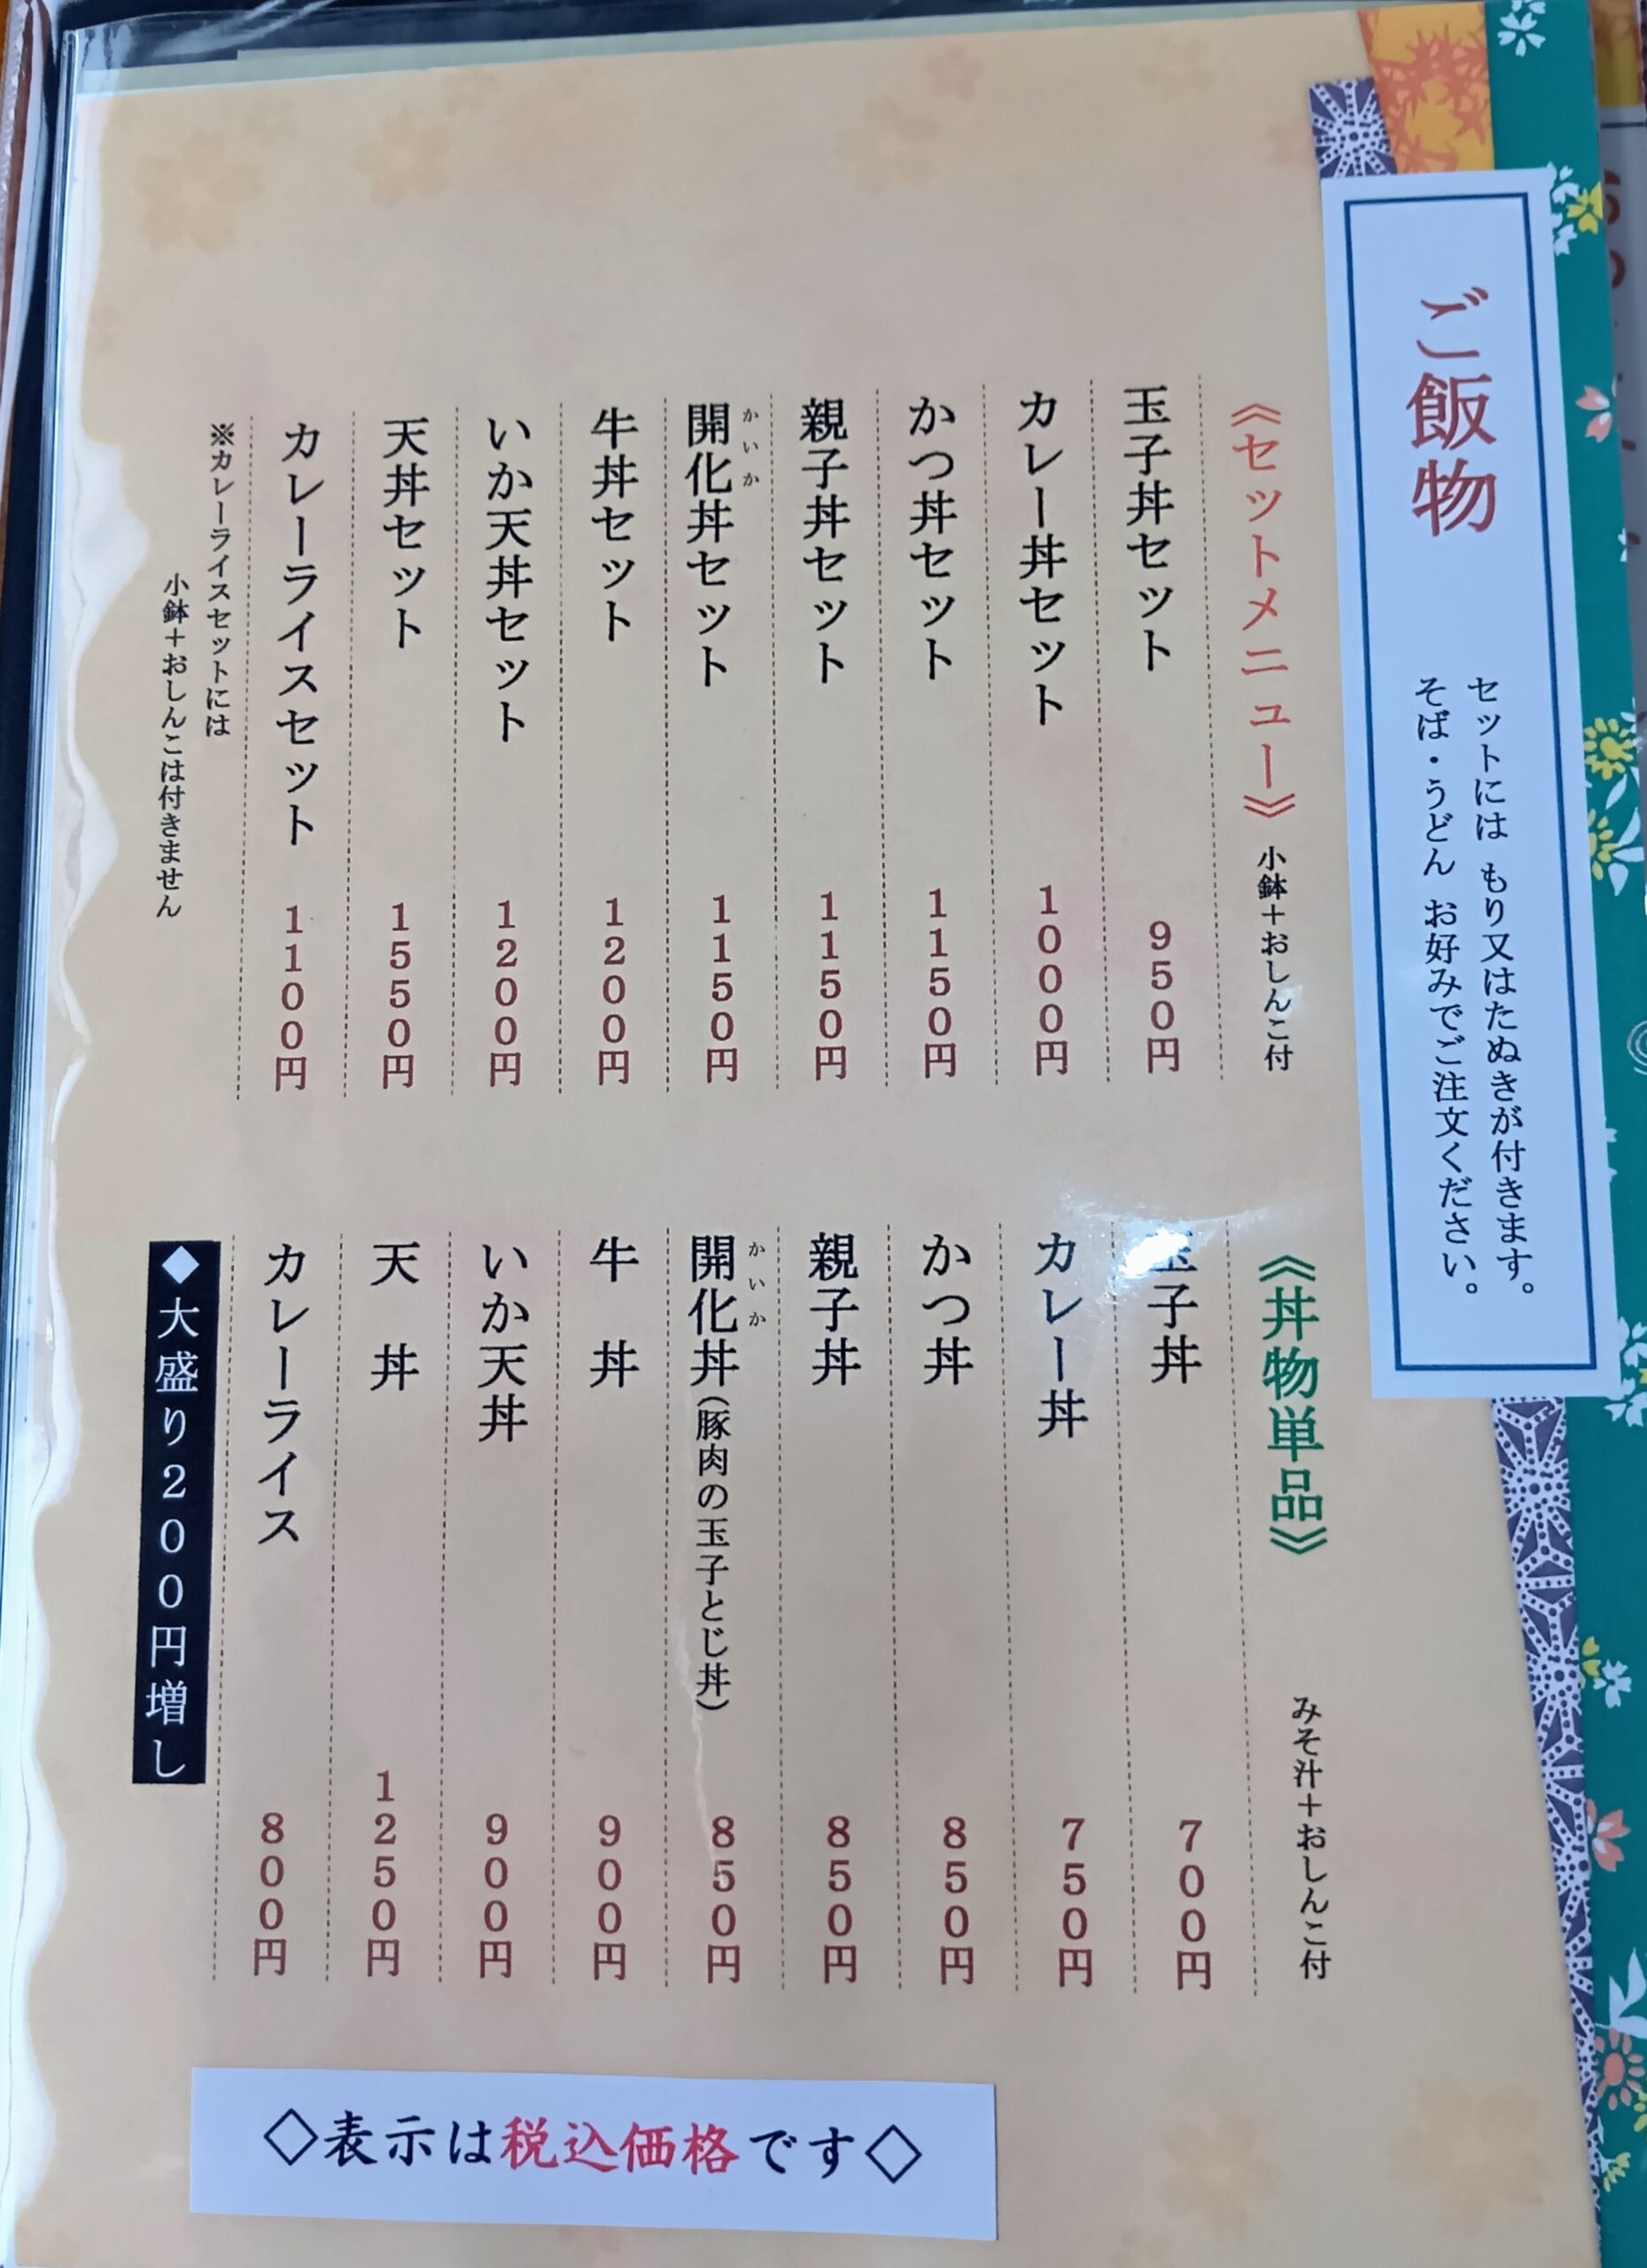 ご飯物
セットには もり又はたぬきが付きます。
そば・うどん お好みでご注文ください。
《セットメニュー》 小鉢＋おしんこ付
玉子丼セット 950円
カレー丼セット 1000円
かつ丼セット 1150円
親子丼セット 1150円
かいか
開化丼セット 1150円
牛丼セット 1200円
いか天丼セット 1200円
天丼セット 1550円
カレーライスセット 1100円
※カレーライスセットには
小鉢＋おしんこは付きません
《丼物単品》 みそ汁＋おしんこ付
玉子丼 700円
カレー丼 750円
かつ丼 850円
親子丼 850円
かいか
開化丼(豚肉の玉子とじ丼) 850円
牛 丼 900円
いか天丼 900円
天 丼 1250円
カレーライス 800円
◆大盛り200円増し
◇表示は税込価格です◇